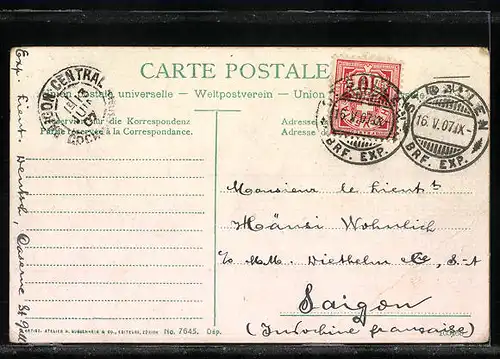 CARTE POSTALE
Union postale universelle – Weltpostverein – Union
Reserviert für die Korrespondenz
Partie réservée à la Correspondance.
Adresse
Adresse
CENTRAL
16. V. 07. IX–
BRF. EXP.
ST. GALLEN
16. V. 07. IX–
BRF. EXP.
Exp. Lieut. Deutsch, Caserne St Gall
Monsieur le Lieutt
Hänsi Wohnlich
c/o MM. Diethelm & Co, S-A
Saigon
(Indochine française)
No. 7645. Dép.